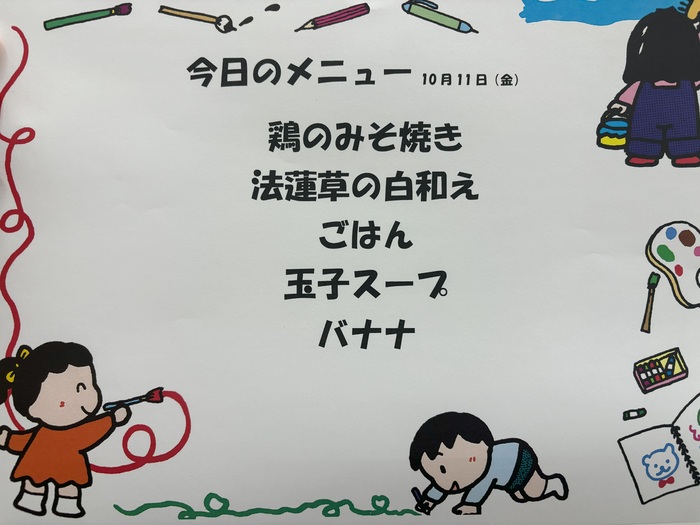 今日のメニュー 10月11日（金）
鶏のみそ焼き
法蓮草の白和え
ごはん
玉子スープ
バナナ